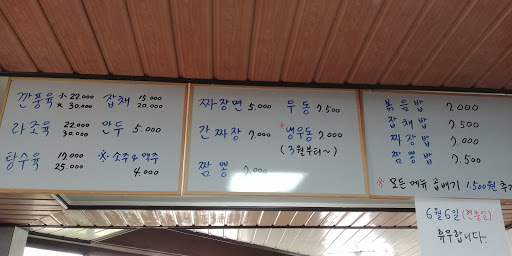 깐풍육 小 22.000
大 30.000
잡채 15.000
20.000
라조육 22.000
30.000
만두 5.000
탕수육 17.000
25.000
※ 소주 & 맥주
4.000
짜장면 5.000
우동 7.500
간짜장 7.000
*냉우동 7.000
(3월부터~)
짬뽕 7.000
볶음밥 7.000
잡채밥 7.500
짜장밥 7.000
짬뽕밥 7.500
※ 모든 메뉴 곱배기 1.500원 추가
6월 6일 (현충일)
휴무합니다.